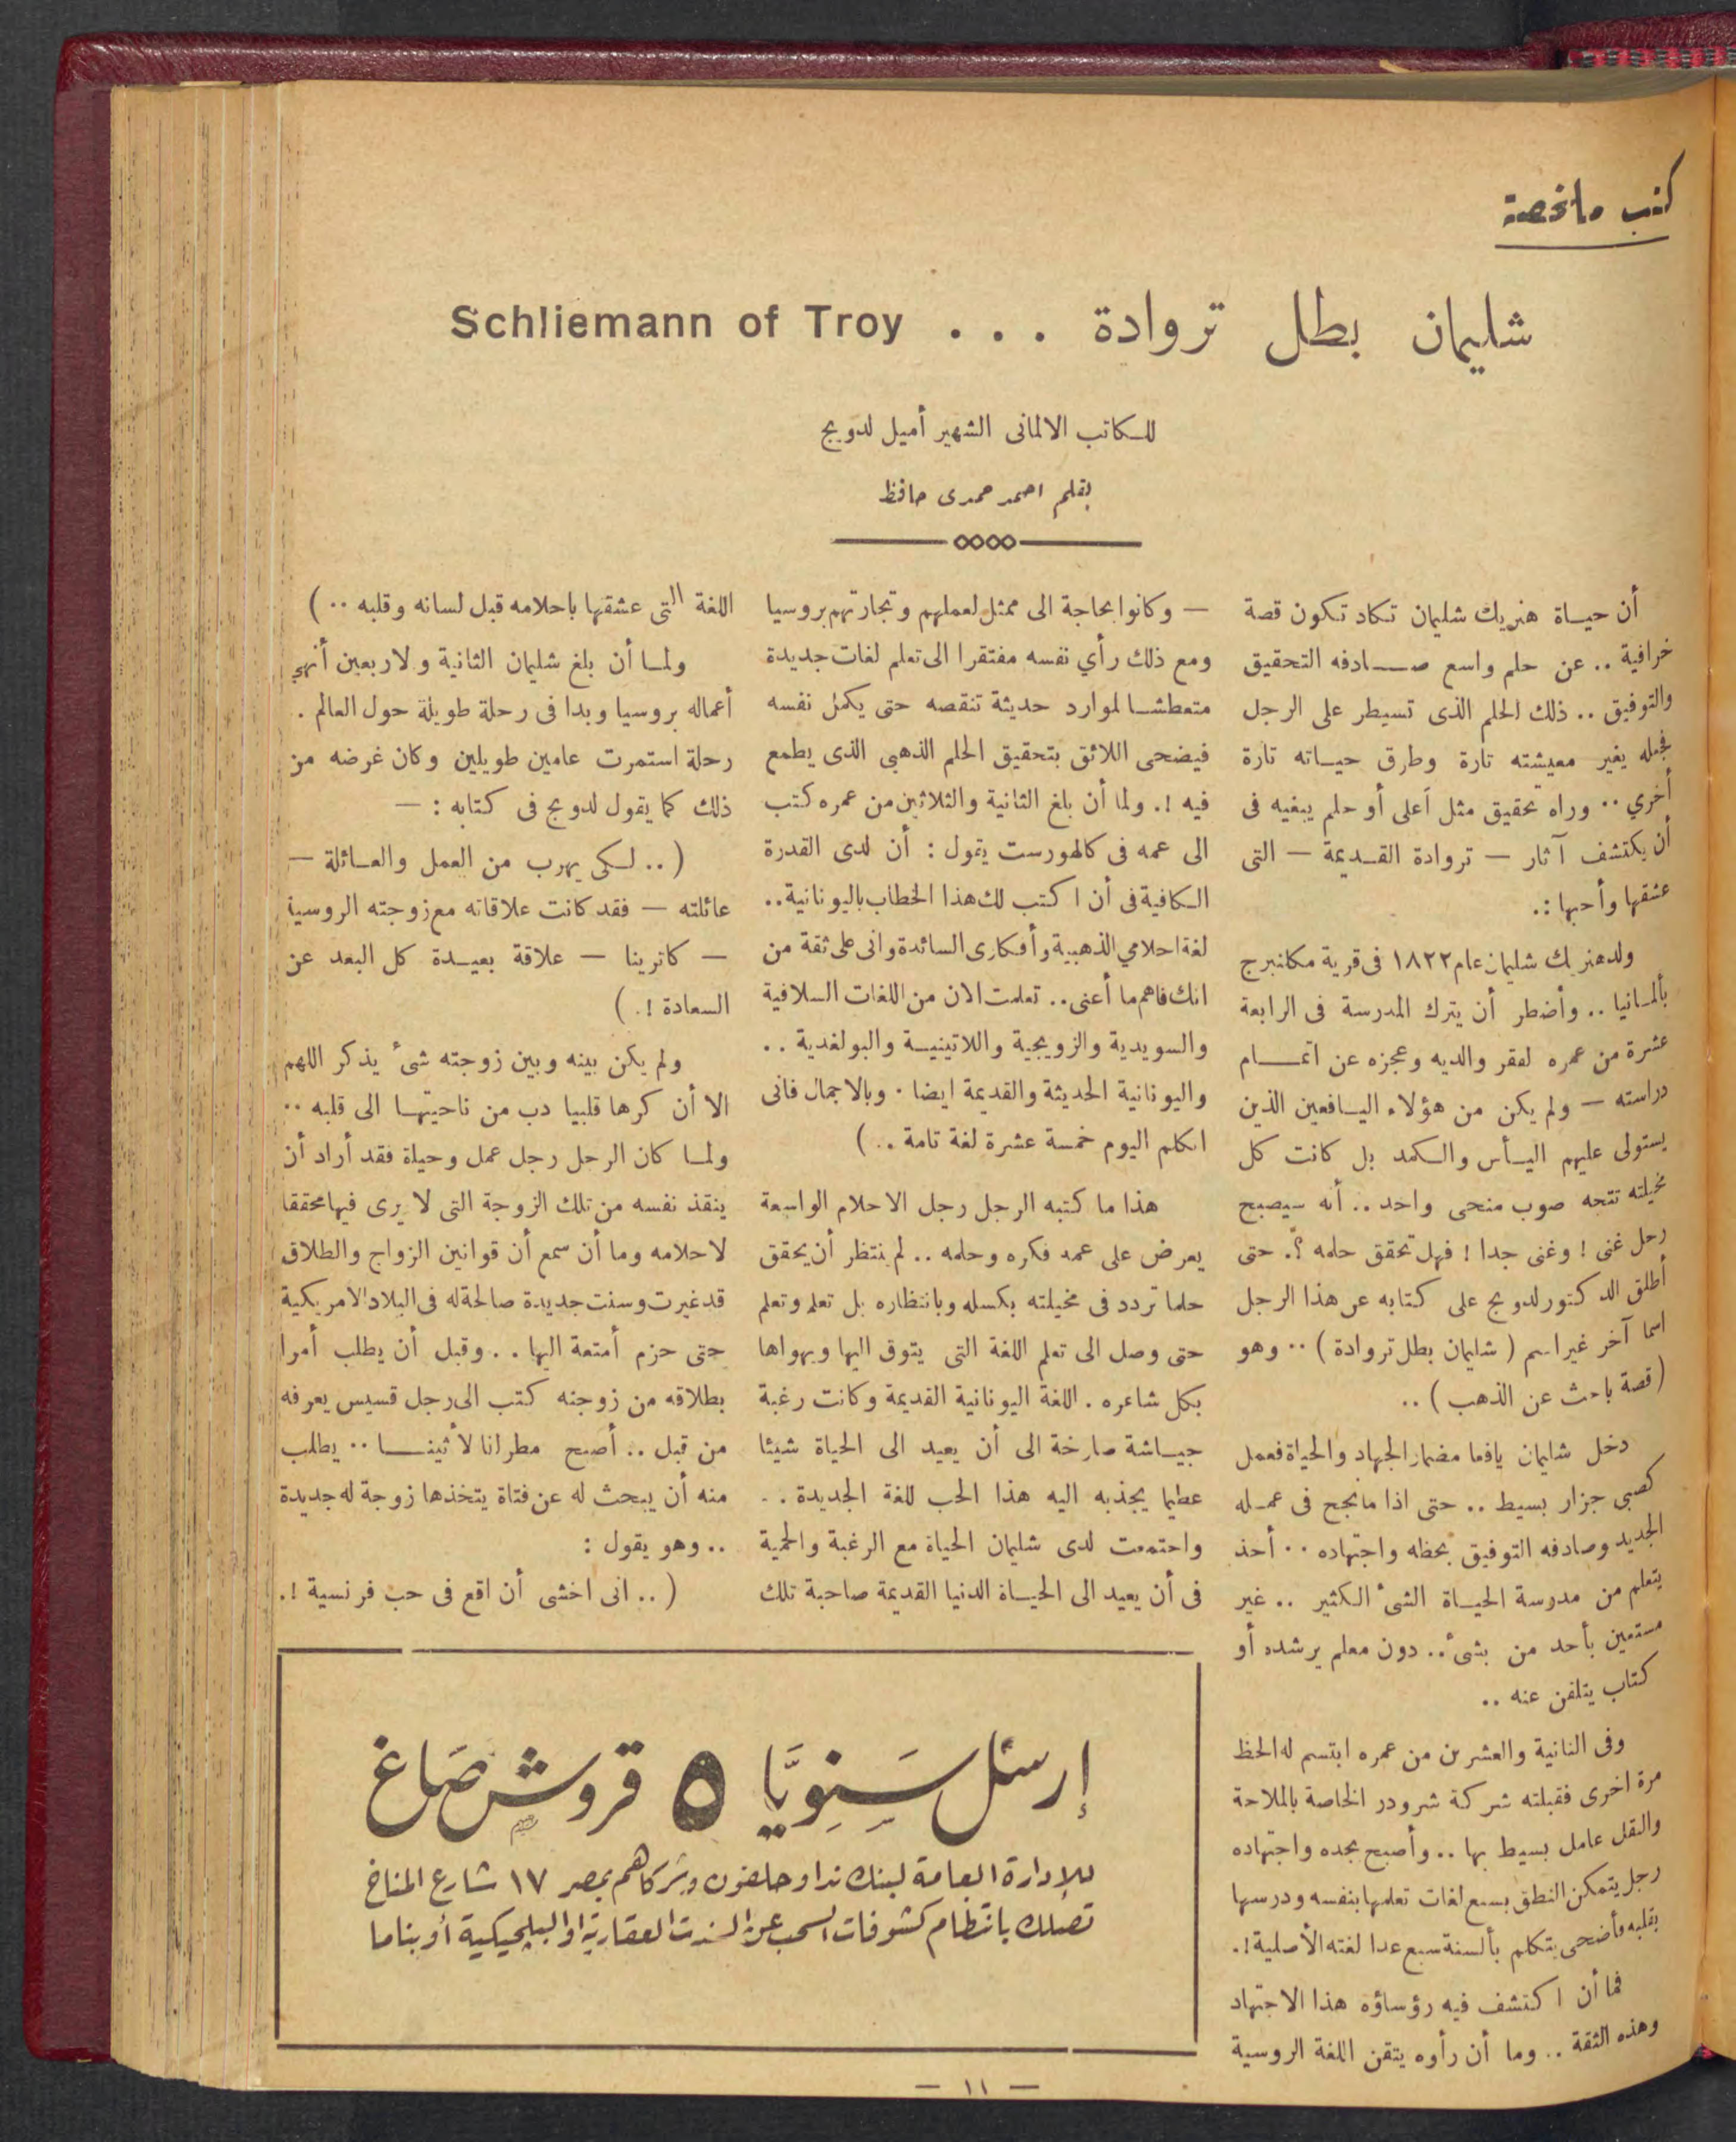 كتب ملخصة
شليمان بطل تروادة . . . Schliemann of Troy
للكاتب الالمانى الشهير أميل لدويج
بقلم احمد حمدى حافظ
أن حياة هنريك شليمان تكاد تكون قصة
خرافية .. عن حلم واسع صادفه التحقيق
والتوفيق .. ذلك الحلم الذى تسيطر على الرجل
فجعله يغير معيشته تارة وطرق حياته تارة
أخري .. وراه تحقيق مثل أعلى أو حلم يبغيه فى
أن يكتشف آثار — تروادة القديمة — التى
عشقها وأحبها :.
ولد هنريك شليمان عام ١٨٢٢ فى قرية مكانبرج
بألمانيا .. وأضطر أن يترك المدرسة فى الرابعة
عشرة من عمره لفقر والديه وعجزه عن اتمام
دراسته — ولم يكن من هؤلاء اليافعين الذين
يستولى عليهم اليأس والكمد بل كانت كل
مخيلته تتجه صوب منحى واحد .. أنه سيصبح
رجل غنى ! وغنى جدا ! فهل تحقق حلمه ؟. حتى
أطلق الدكتور لدويج على كتابه عن هذا الرجل
اسما آخر غير اسم ( شليمان بطل تروادة ) .. وهو
( قصة باحث عن الذهب ) ..
دخل شليمان يافعا مضمار الجهاد والحياة فعمل
كصبى جزار بسيط .. حتى اذا ما نجح فى عمله
الجديد وصادفه التوفيق بحظه واجتهاده .. أخذ
يتعلم من مدرسة الحياة الشئ الكثير .. غير
مستعين بأحد من بشئ .. دون معلم يرشده أو
كتاب يتلقن عنه ..
وفى الثانية والعشرين من عمره ابتسم له الحظ
مرة اخرى فقبلته شركة شرودر الخاصة بالملاحة
والنقل عامل بسيط بها .. وأصبح بجده واجتهاده
رجل يتمكن النطق بسبع لغات تعلمها بنفسه ودرسها
بقلبه فأضحى يتكلم بألسنة سبع عدا لغته الأصلية !.
فما أن اكتشف فيه رؤساؤه هذا الاجتهاد
وهذه الثقة .. وما أن رأوه يتقن اللغة الروسية
— وكانوا بحاجة الى ممثل لعملهم وتجارتهم بروسيا
ومع ذلك رأي نفسه مفتقرا الى تعلم لغات جديدة
متعطشا لموارد حديثة تنقصه حتى يكمل نفسه
فيضحى اللائق بتحقيق الحلم الذهبي الذى يطمع
فيه !. ولما أن بلغ الثانية والثلاثين من عمره كتب
الى عمه فى كالهورست يقول : أن لدى القدرة
الكافية فى أن اكتب لك هذا الخطاب باليونانية ..
لغة احلامي الذهبية وأفكارى السائدة وانى على ثقة من
انك فاهم ما أعنى .. تعلمت الان من اللغات السلافية
والسويدية والزويجية واللاتينية والبولغدية ..
واليونانية الحديثة والقديمة ايضا . وبالاجمال فانى
اتكلم اليوم خمسة عشرة لغة تامة .. )
هذا ما كتبه الرجل رجل الاحلام الواسعة
يعرض على عمه فكره وحلمه .. لم ينتظر أن يحقق
حلما تردد فى مخيلته بكسله وبانتظاره بل تعلم وتعلم
حتى وصل الى تعلم اللغة التى يتوق اليها ويهواها
بكل شاعره . اللغة اليونانية القديمة وكانت رغبة
جياشة صارخة الى أن يعيد الى الحياة شيئا
عظيما يجذبه اليه هذا الحب للغة الجديدة ..
واجتمعت لدى شليمان الحياة مع الرغبة والحمية
فى أن يعيد الى الحياة الدنيا القديمة صاحبة تلك
اللغة التى عشقها باحلامه قبل لسانه وقلبه .. )
ولما أن بلغ شليمان الثانية ولاربعين أنهي
أعماله بروسيا وبدا فى رحلة طويلة حول العالم .
رحلة استمرت عامين طويلين وكان غرضه من
ذلك كما يقول لدويج فى كتابه : —
( .. لكى يهرب من العمل والعائلة —
عائلته — فقد كانت علاقاته مع زوجته الروسية
— كاترينا — علاقة بعيدة كل البعد عن
السعادة !. )
ولم يكن بينه وبين زوجته شئ يذكر اللهم
الا أن كرها قلبيا دب من ناحيتها الى قلبه ..
ولما كان الرجل رجل عمل وحياة فقد أراد أن
ينقذ نفسه من تلك الزوجة التى لا يرى فيها محققا
لاحلامه وما أن سمع أن قوانين الزواج والطلاق
قد غيرت وسنت جديدة صالحة له فى البلاد الامريكية
حتى حزم أمتعة اليها .. وقبل أن يطلب أمرا
بطلاقه من زوجته كتب الى رجل قسيس يعرفه
من قبل .. أصبح مطرانا لأثينا .. يطلب
منه أن يبحث له عن فتاة يتخذها زوجة له جديدة
.. وهو يقول :
( .. انى اخشى أن اقع فى حب فرنسية !.
إرسل سنويًا ٥ قروش صاغ
للإدارة العامة لبنك ندا وحلفون وشركاهم بمصر ١٧ شارع المناخ
تصلك بانتظام كشوفات السحب عن السندات العقارية او البلجيكية أو بناما
— ١١ —